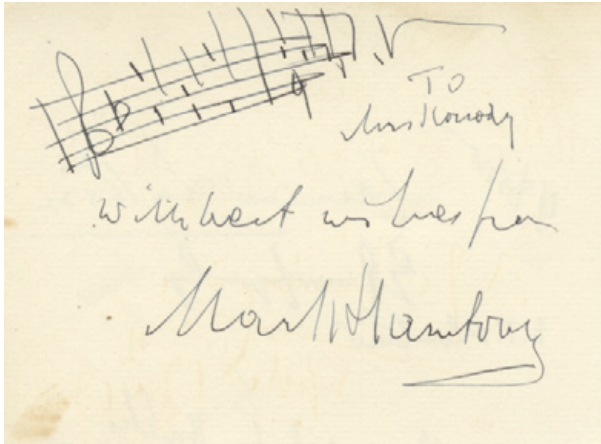 To
Mrs Konody
with best wishes from
Mark Hambourg